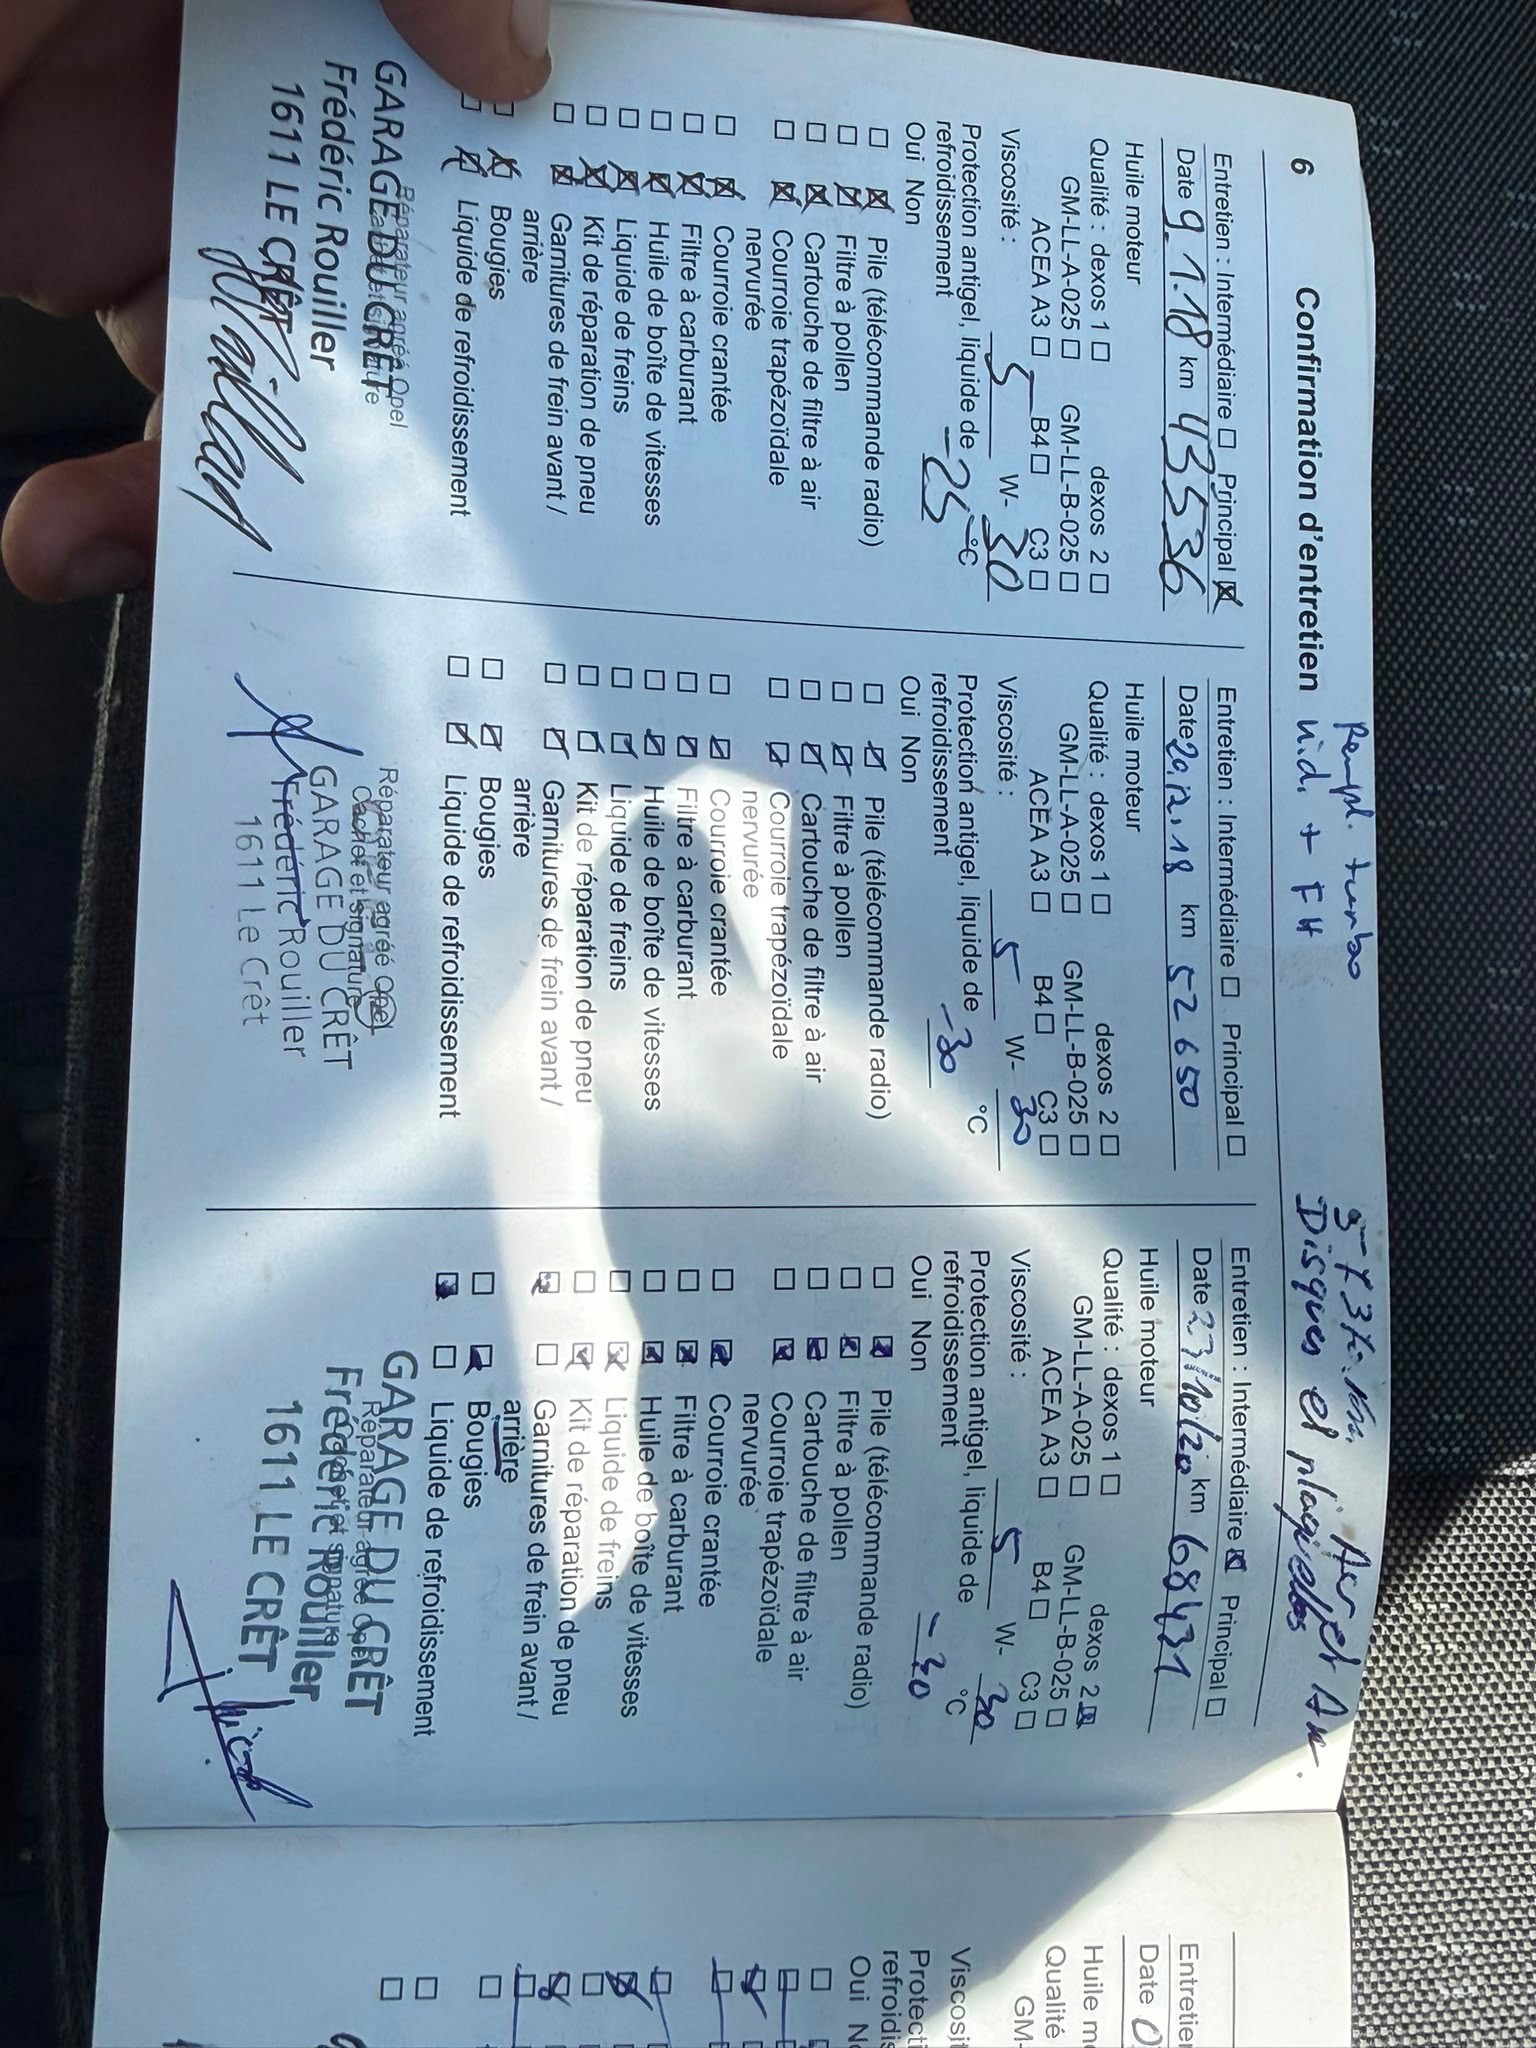 6 Confirmation d'entretien
Rempl. turbo
Disques et plaquettes
Entretien : Intermédiaire ☐ Principal ☒
Date 9.1.18 km 43536
Huile moteur
Qualité : dexos 1 ☐ dexos 2 ☐
GM-LL-A-025 ☐ GM-LL-B-025 ☐
ACEA A3 ☐ B4 ☐ C3 ☐
Viscosité : 5 W- 30
Protection antigel, liquide de
refroidissement -25 °C
Oui Non
☐ ☒ Pile (télécommande radio)
☐ ☒ Filtre à pollen
☐ ☒ Cartouche de filtre à air
☐ ☒ Courroie trapézoïdale
nervurée
☐ ☒ Courroie crantée
☐ ☒ Filtre à carburant
☐ ☒ Huile de boîte de vitesses
☐ ☒ Liquide de freins
☐ ☒ Kit de réparation de pneu
☐ ☒ Garnitures de frein avant /
arrière
☐ ☒ Bougies
☐ ☒ Liquide de refroidissement
Réparateur agréé Opel
GARAGE DU CRÊT
Frédéric Rouiller
1611 LE CRÊT
Entretien : Intermédiaire ☐ Principal ☐
Date 20.12.18 km 52650
Huile moteur
Qualité : dexos 1 ☐ dexos 2 ☐
GM-LL-A-025 ☐ GM-LL-B-025 ☐
ACEA A3 ☐ B4 ☐ C3 ☐
Viscosité : 5 W- 30
Protection antigel, liquide de
refroidissement -30 °C
Oui Non
☐ ☒ Pile (télécommande radio)
☐ ☒ Filtre à pollen
☐ ☒ Cartouche de filtre à air
☐ ☒ Courroie trapézoïdale
nervurée
☐ ☒ Courroie crantée
☐ ☒ Filtre à carburant
☐ ☒ Huile de boîte de vitesses
☐ ☒ Liquide de freins
☐ ☒ Kit de réparation de pneu
☐ ☒ Garnitures de frein avant /
arrière
☐ ☒ Bougies
☐ ☒ Liquide de refroidissement
Réparateur agréé Opel
Cachet et signature
GARAGE DU CRÊT
Frédéric Rouiller
1611 Le Crêt
Entretien : Intermédiaire ☒ Principal ☐
Date 23/10/20 km 68431
Huile moteur
Qualité : dexos 1 ☐ dexos 2 ☒
GM-LL-A-025 ☐ GM-LL-B-025 ☐
ACEA A3 ☐ B4 ☐ C3 ☐
Viscosité : 5 W- 30
Protection antigel, liquide de
refroidissement -30 °C
Oui Non
☐ ☒ Pile (télécommande radio)
☐ ☒ Filtre à pollen
☐ ☒ Cartouche de filtre à air
☐ ☒ Courroie trapézoïdale
nervurée
☐ ☒ Courroie crantée
☐ ☒ Filtre à carburant
☐ ☒ Huile de boîte de vitesses
☐ ☒ Liquide de freins
☐ ☒ Kit de réparation de pneu
☒ ☐ Garnitures de frein avant /
arrière
☐ ☒ Bougies
☒ ☐ Liquide de refroidissement
GARAGE DU CRÊT
Réparateur agréé Opel
Cachet et signature
Frédéric Rouiller
1611 LE CRÊT
Entretien
Date 0
Huile mo
Qualité
GM-
Viscosit
Protecti
refroidis
Oui N